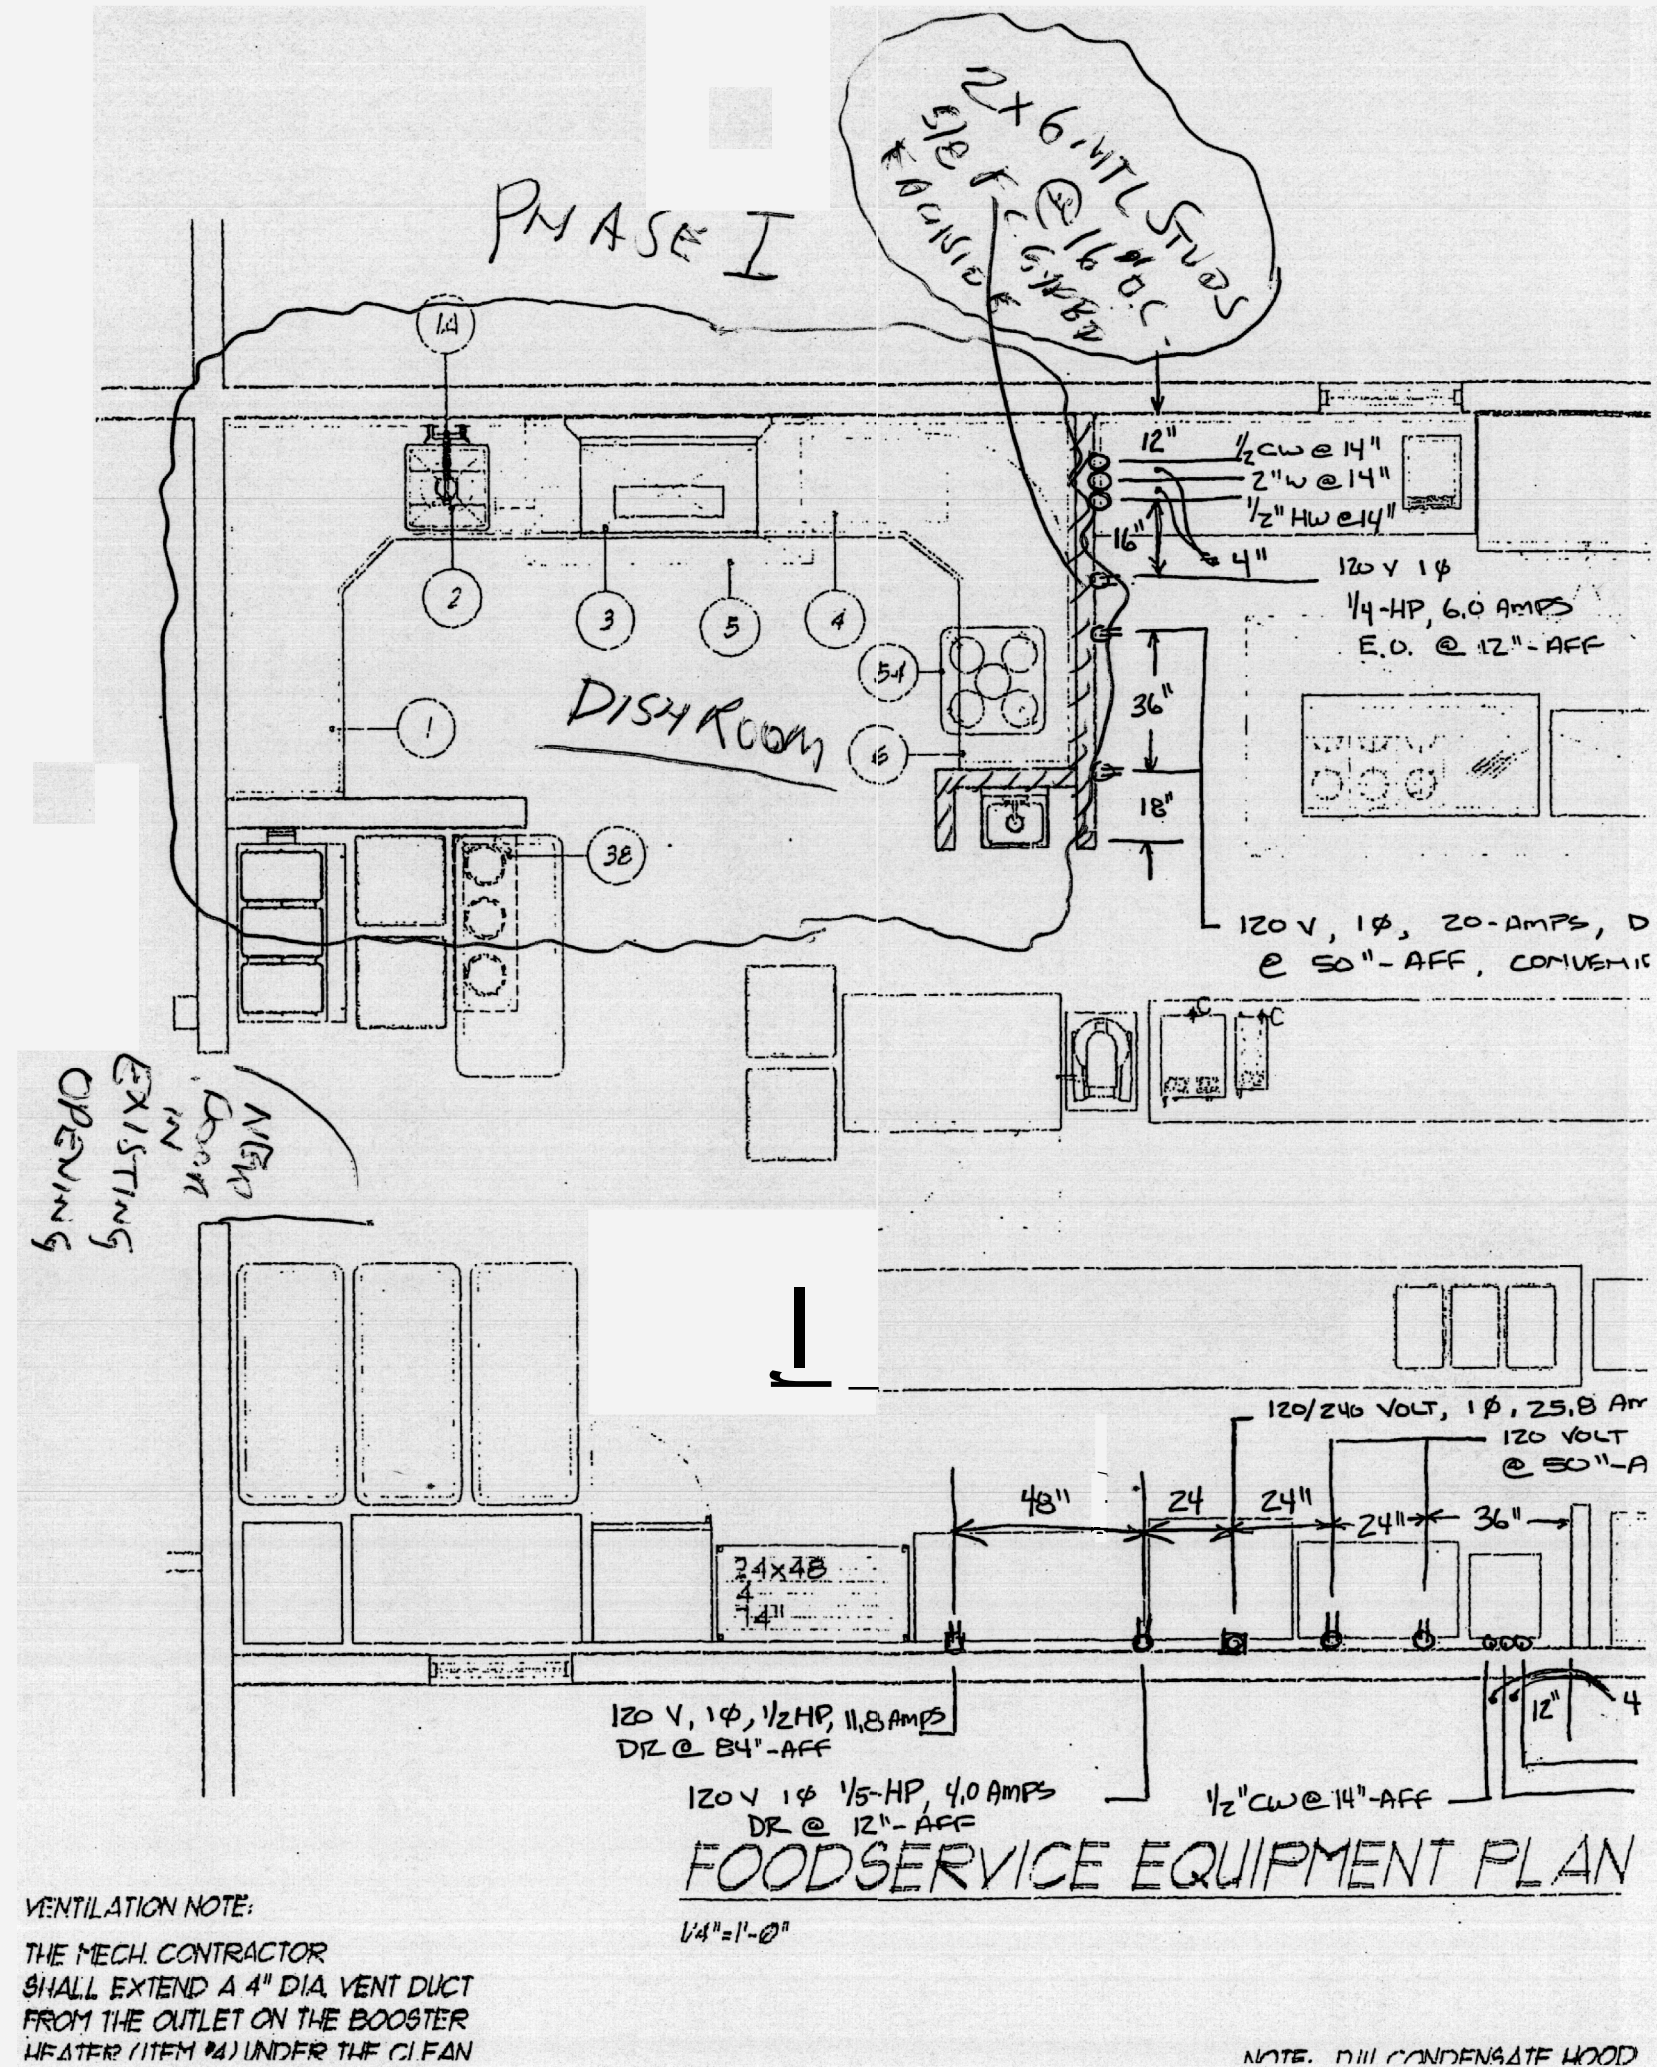 PHASE I
2x6 MTL STUDS
@ 16" O.C.
5/8 F.C. GYPBD
EA UNSIDE
1A
12"
1/2 CW @ 14"
2" W @ 14"
1/2" HW @ 14"
16"
4"
120 V 1φ
1/4-HP, 6.0 AMPS
E.O. @ 12"-AFF
2
3
5
4
5A
DISHROOM
1
6
36"
18"
38
120 V, 1φ, 20-AMPS, D
@ 50"-AFF, CONVENIE
C
C
NEW
DOOR
IN
EXISTING
OPENING
120/240 VOLT, 1φ, 25.8 Am
120 VOLT
@ 50"-A
48"
24
24"
24"
36"
24x48
4
74"
120 V, 1φ, 1/2HP, 11.8 AMPS
DR @ 84"-AFF
12"
4
120 V 1φ 1/5-HP, 4.0 AMPS
DR @ 12"-AFF
1/2" CW @ 14"-AFF
FOODSERVICE EQUIPMENT PLAN
1/4"=1'-0"
VENTILATION NOTE:
THE MECH. CONTRACTOR
SHALL EXTEND A 4" DIA. VENT DUCT
FROM THE OUTLET ON THE BOOSTER
HEATER (ITEM #4) UNDER THE CLEAN
NOTE: D/W CONDENSATE HOOD